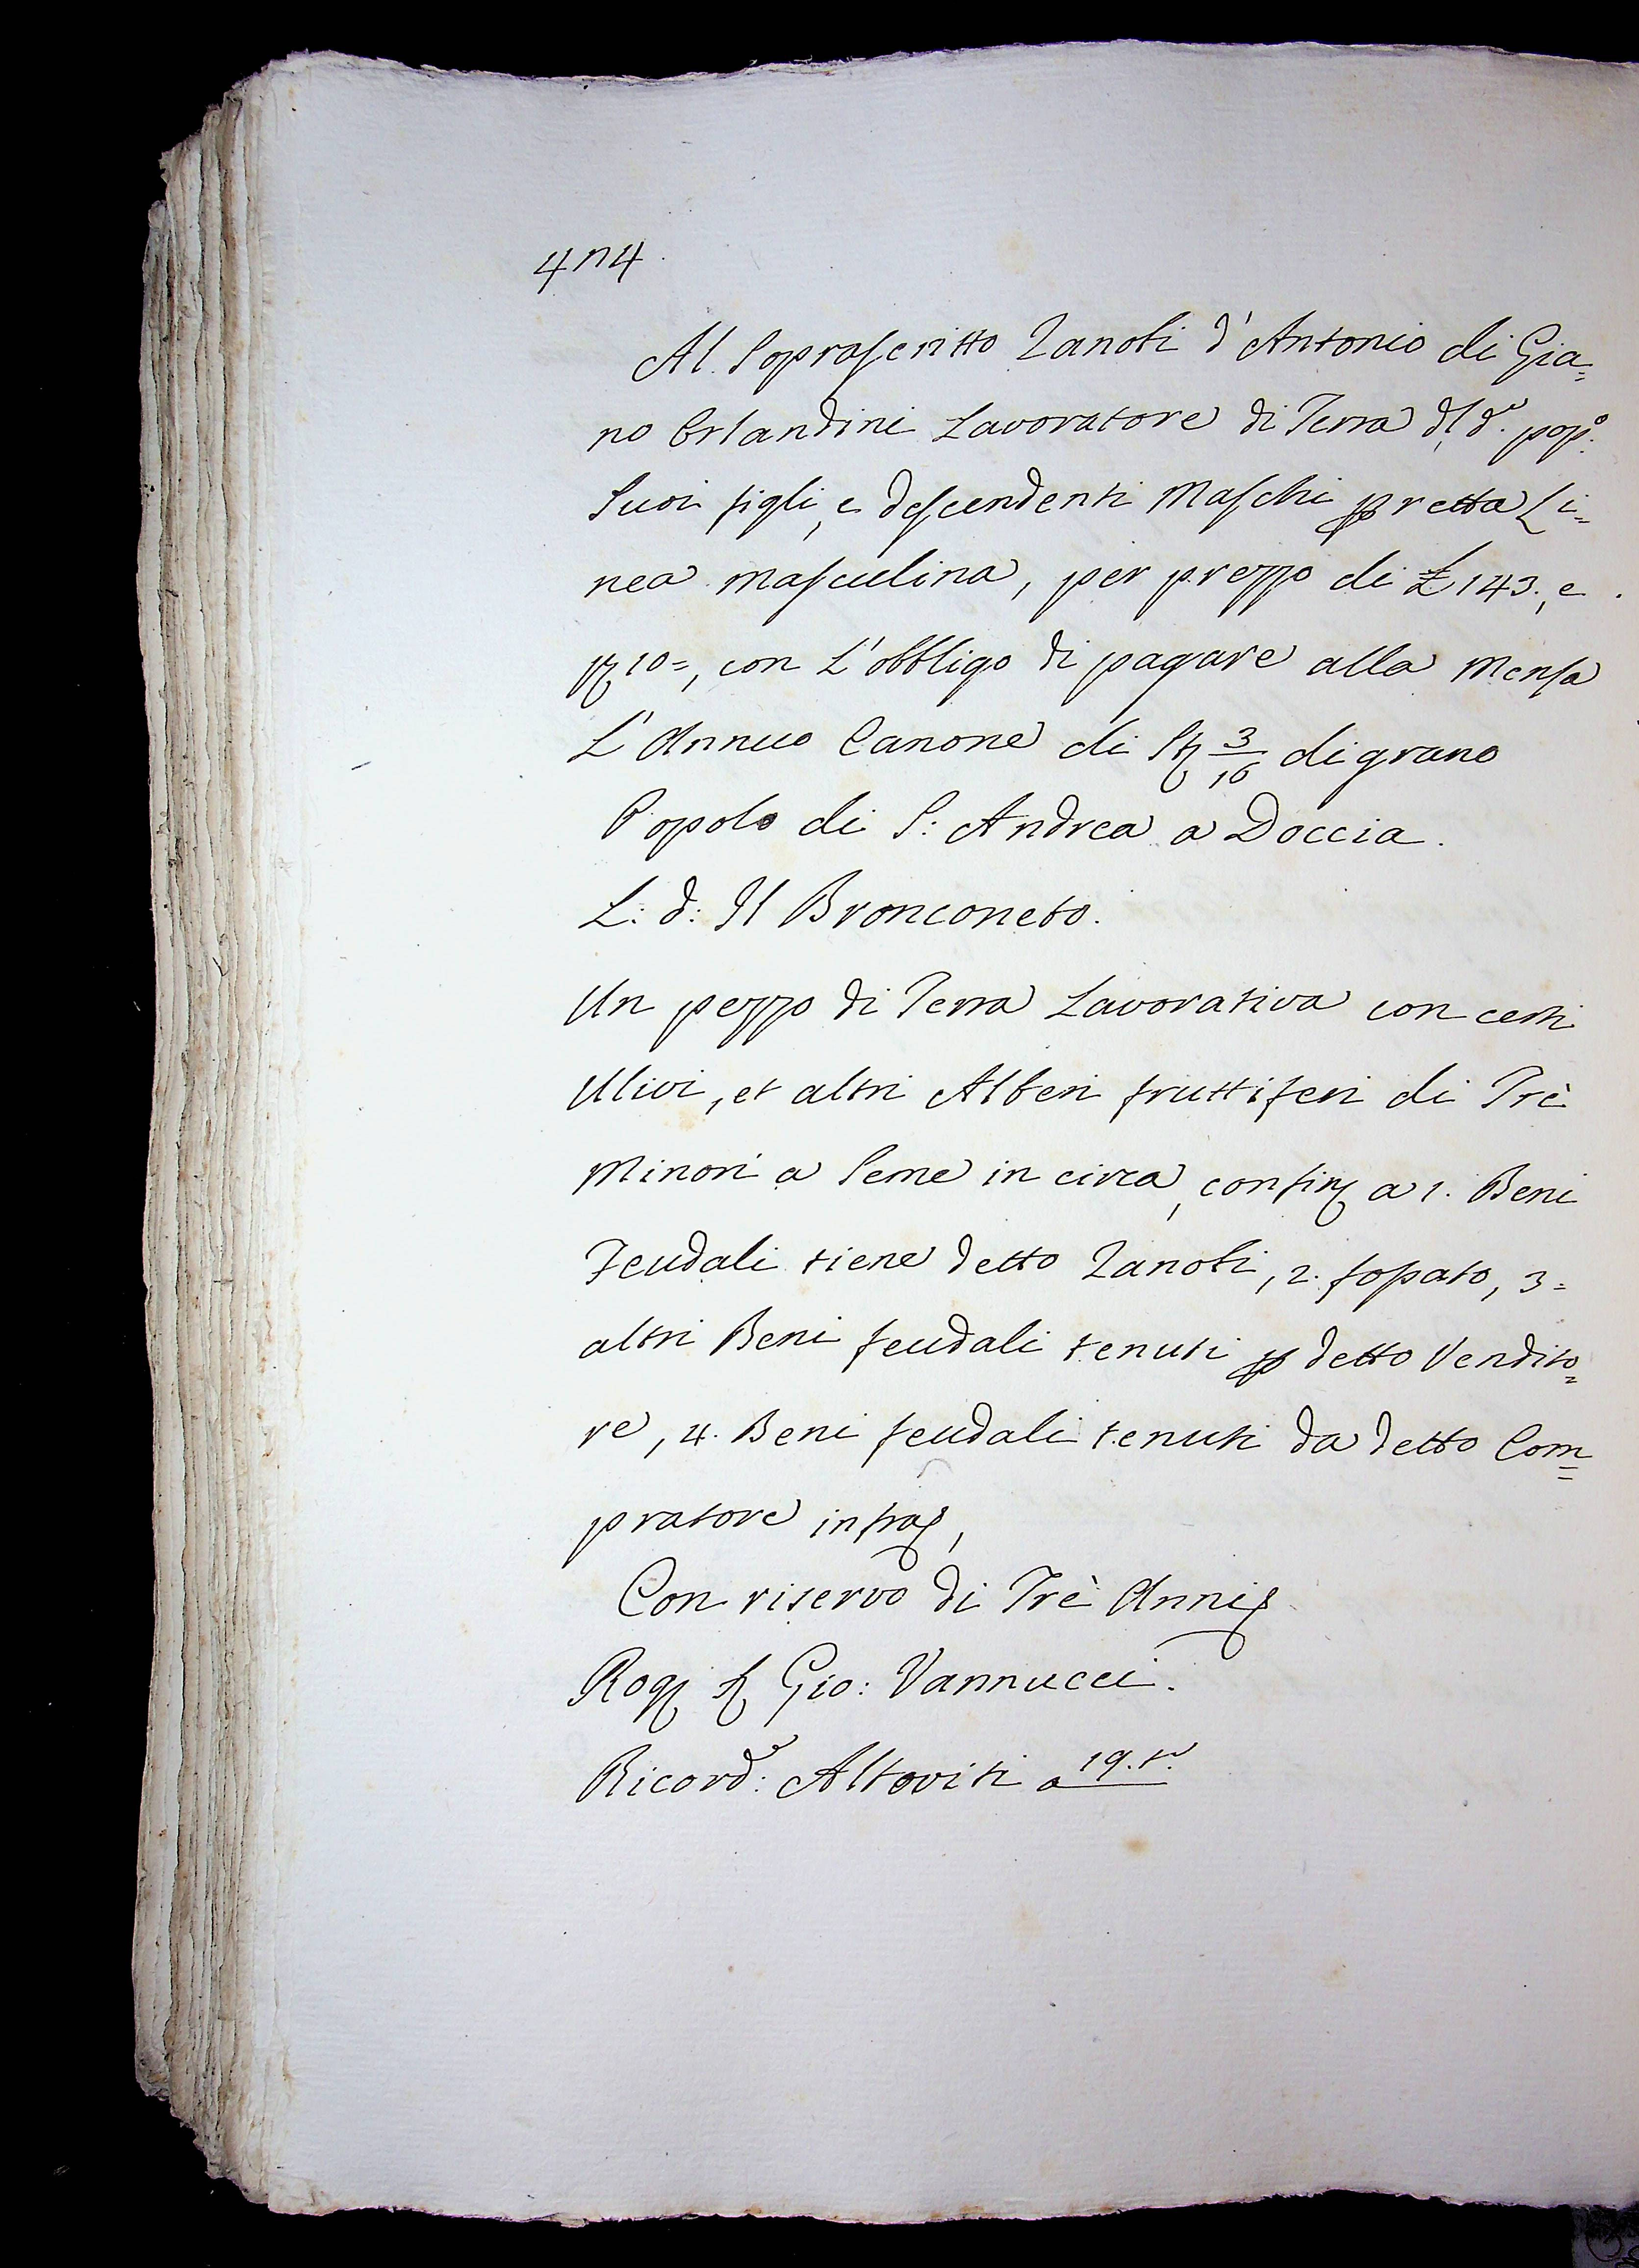 4n4.
Al Soprascritto Zanobi d'Antonio di Gia=
no Orlandini Lavoratore di Terra dl d.º pop.º
Suoi figli, e descendenti Maschi p retta Li=
nea masculina, per prezzo di £ 143., e
p 10=, con L'obbligo di pagare alla Mensa
L'Annuo Canone di St 3/16 di grano
Popolo di S: Andrea a Doccia.
L: d: Il Bronconeto.
Un pezzo di Terra Lavorativa con certi
Ulivi, et altri Alberi fruttiferi di Trè
Minori a Seme in circa, confin a 1. Beni
Feudali tiene detto Zanobi, 2. fossato, 3=
altri Beni feudali tenuti p detto Vendito=
re, 4. Beni feudali tenuti da detto Com=
pratore infras,
Con riservo di Trè Anni
Rog f Gio: Vannucci.
Ricord: Altoviti a 19. tº.